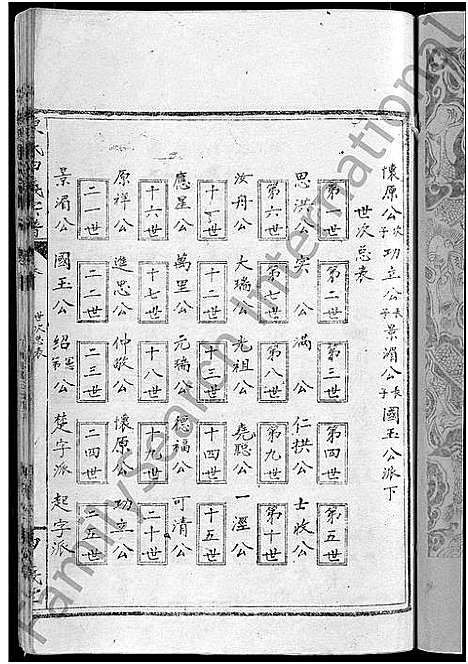 懷原公次子功立公長子景湄公長子國玉公派下
世次总表
第一世 第二世 第三世 第四世 第五世
思洪公 寅公 滿公 仁拱公 士收公
第六世 第七世 第八世 第九世 第十世
汝舟公 大瑞公 光祖公 堯聰公 一溼公
十一世 十二世 十三世 十四世 十五世
應星公 萬里公 元瑞公 德福公 可清公
十六世 十七世 十八世 十九世 二十世
原祥公 進忠公 仲敬公 懷原公 功立公
二一世 二二世 二三世 二四世 二五世
景湄公 國玉公 紹公 楚字派 起字派
世次总表
FamilySearch International